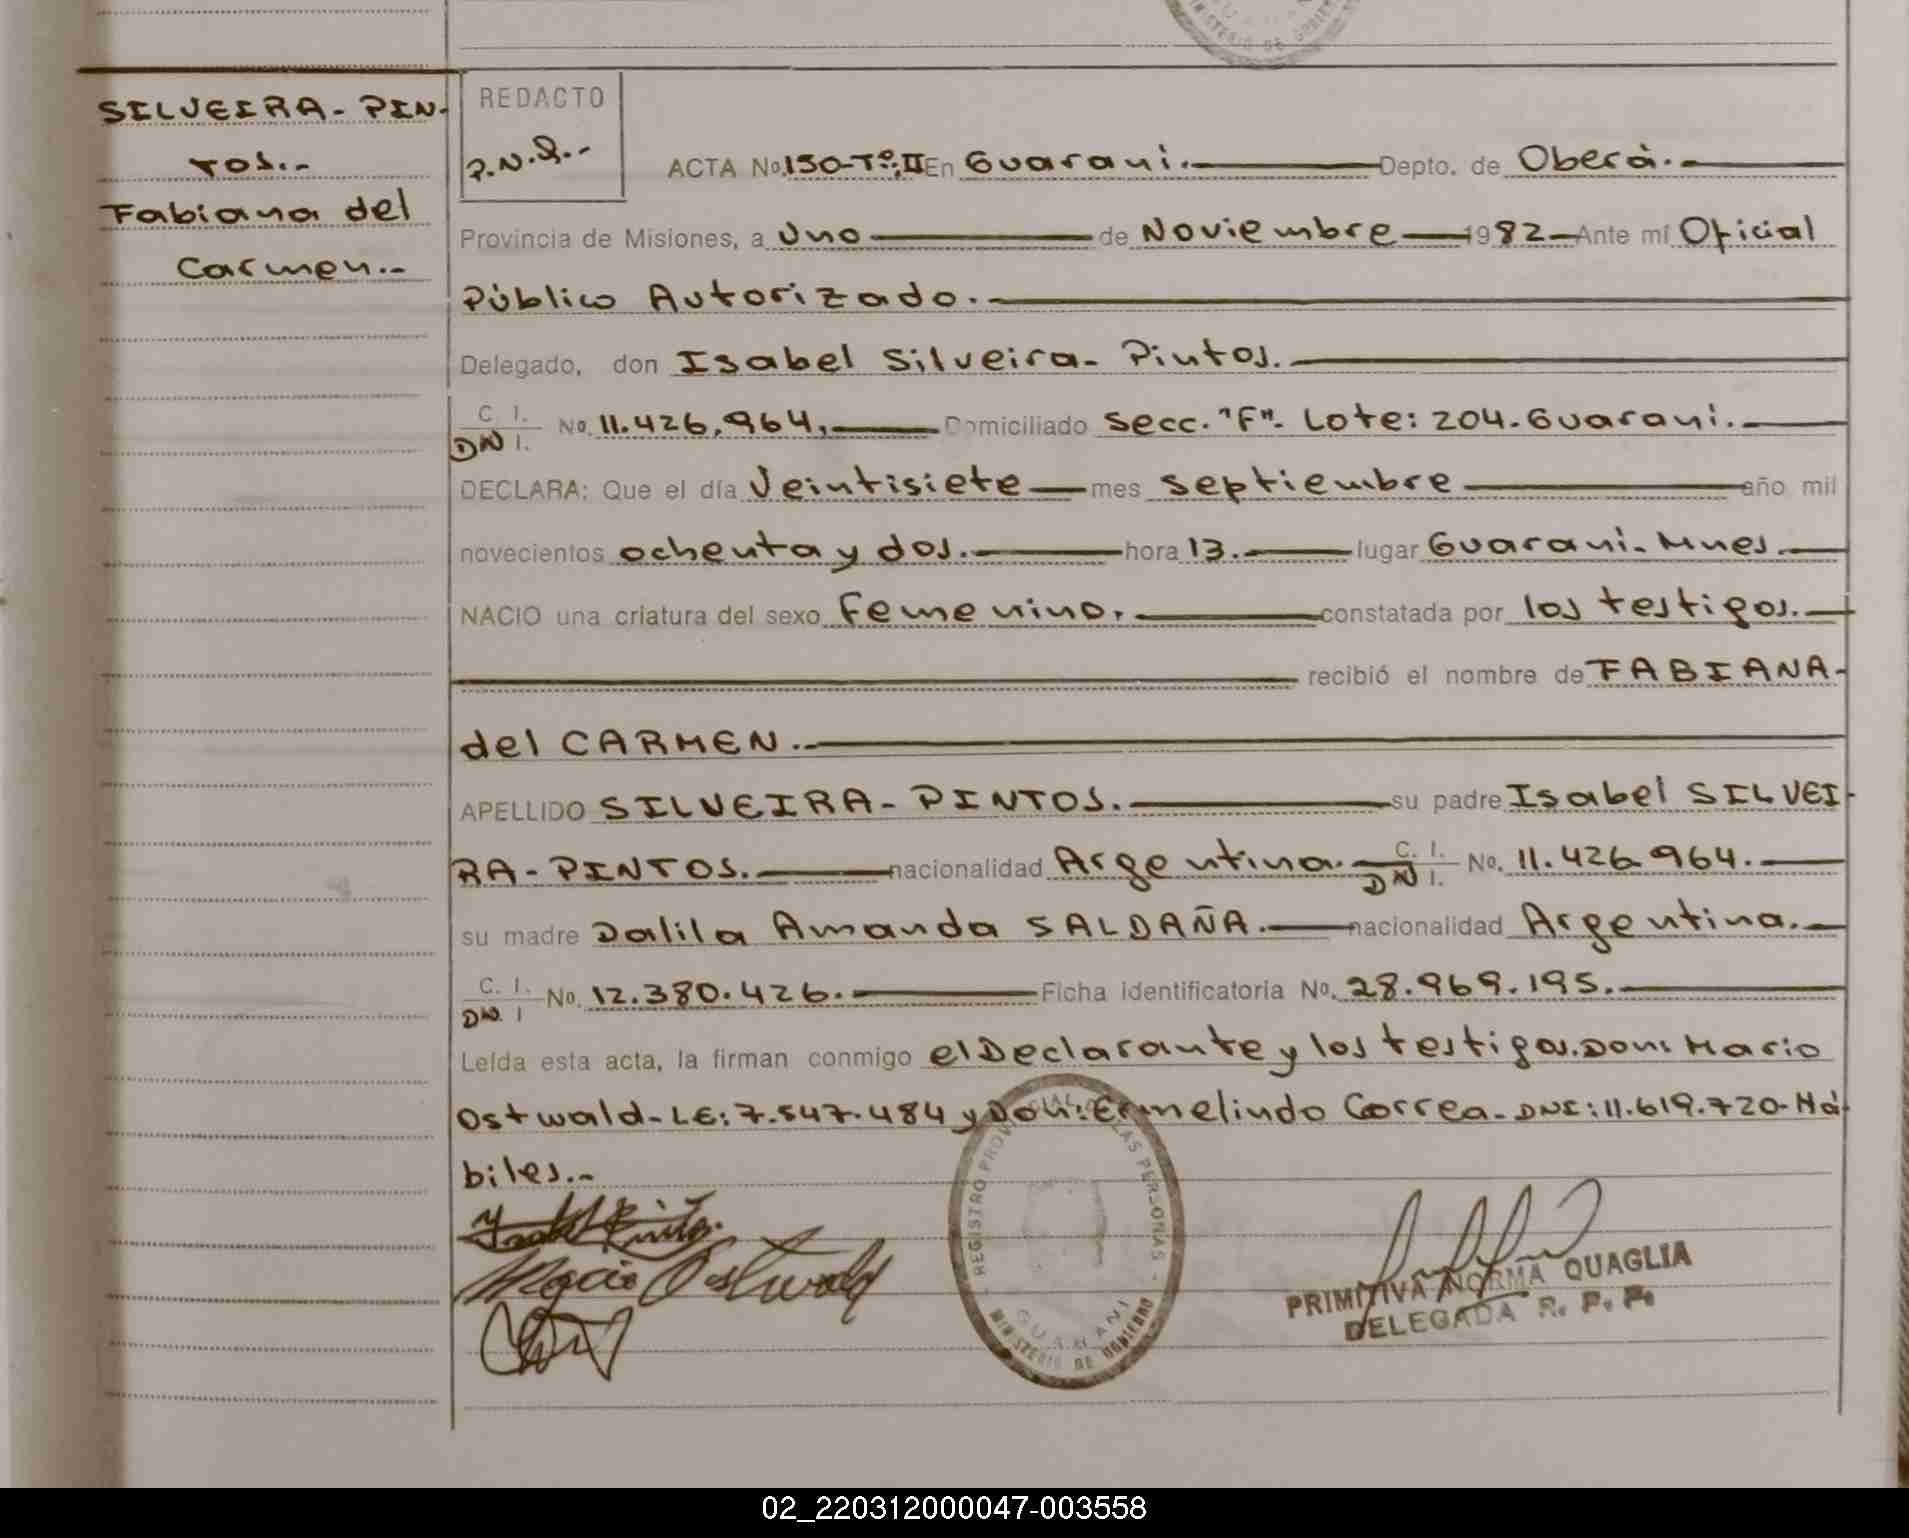 MINISTERIO DE GOBIERNO
SILVEIRA- PIN-
TOS.-
Fabiana del
Carmen.-
REDACTO
P.N.Q.-
ACTA No. 150-Tº:II En Guarani. Depto. de Oberà.-
Provincia de Misiones, a Uno de Noviembre 1982 Ante mí Oficial
Público Autorizado.-
Delegado, don Isabel Silveira- Pintos.
C. I. DN I. No. 11.426.964, Domiciliado Secc. "F"- Lote: 204.Guarani.
DECLARA: Que el día Veintisiete mes septiembre año mil
novecientos ochenta y dos. hora 13. lugar Guarani- Mnes.
NACIO una criatura del sexo Femenino. constatada por los testigos.
recibió el nombre de FABIANA-
del CARMEN.-
APELLIDO SILVEIRA- PINTOS. su padre Isabel SILVEI-
RA- PINTOS. nacionalidad Argentina. C. I. DN I. No. 11.426.964.
su madre Dalila Amanda SALDAÑA. nacionalidad Argentina.
C. I. DN. I No. 12.380.426. Ficha identificatoria No. 28.969.195.
Leída esta acta, la firman conmigo el Declarante y los testigos.Don: Mario
Ostwald- LE: 7.547.484 y Don: Ermelindo Correa- DNI: 11.619.720- Há-
biles.-
Mario Ostwald
REGISTRO PROVINCIAL DE LAS PERSONAS
GUARANI
MINISTERIO DE GOBIERNO
PRIMITIVA NORMA QUAGLIA
DELEGADA R. P. P.
02_220312000047-003558